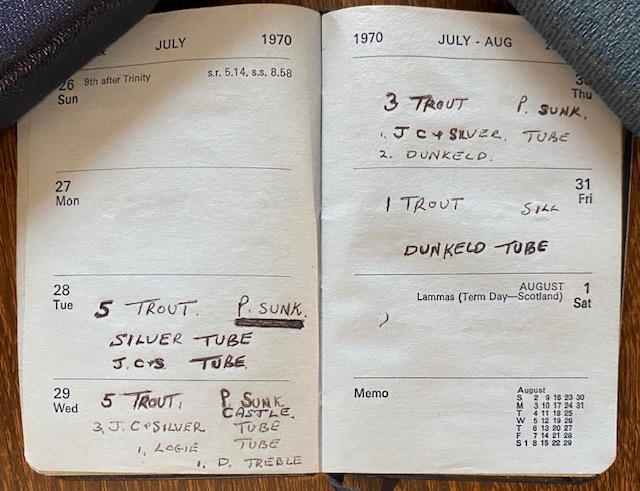 JULY 1970
26 9th after Trinity s.r. 5.14, s.s. 8.58
Sun
27
Mon
28
Tue
5 TROUT. P. SUNK.
SILVER TUBE
J.C+S. TUBE
29
Wed
5 TROUT, P. SUNK
CASTLE
3, J. C+SILVER TUBE
1, LOGIE TUBE
1. D. TREBLE
1970 JULY - AUG
Thu
3 TROUT P. SUNK.
1. J C + SILVER. TUBE
2. DUNKELD.
31
Fri
1 TROUT SILL
DUNKELD TUBE
AUGUST 1
Lammas (Term Day—Scotland) Sat
Memo
August
S 2 9 16 23 30
M 3 10 17 24 31
T 4 11 18 25
W 5 12 19 26
T 6 13 20 27
F 7 14 21 28
S 1 8 15 22 29